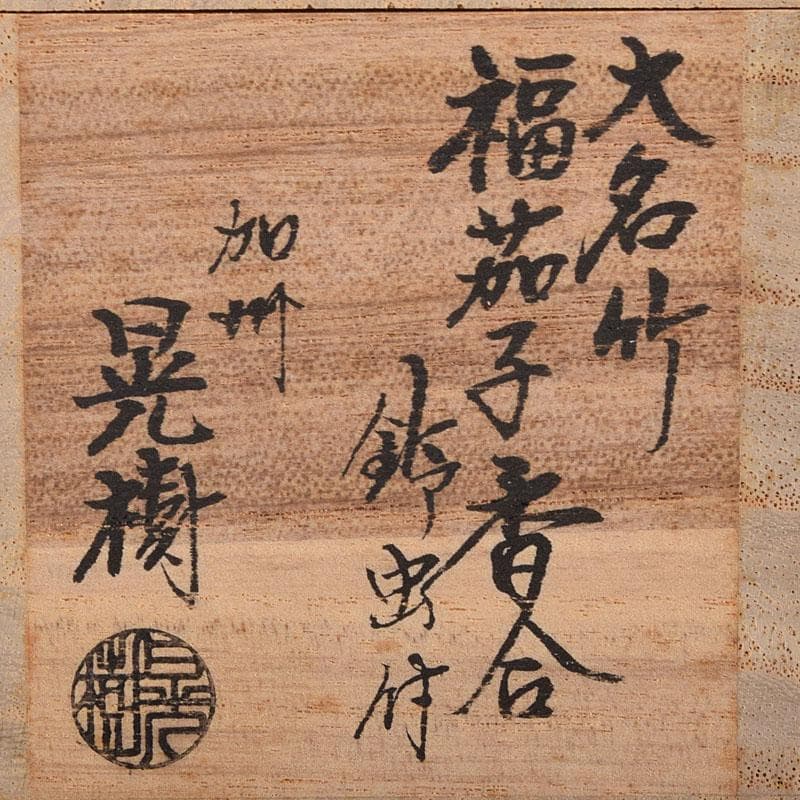 大名竹
福茄子香合
鈴虫付
加州
晃樹
晃樹